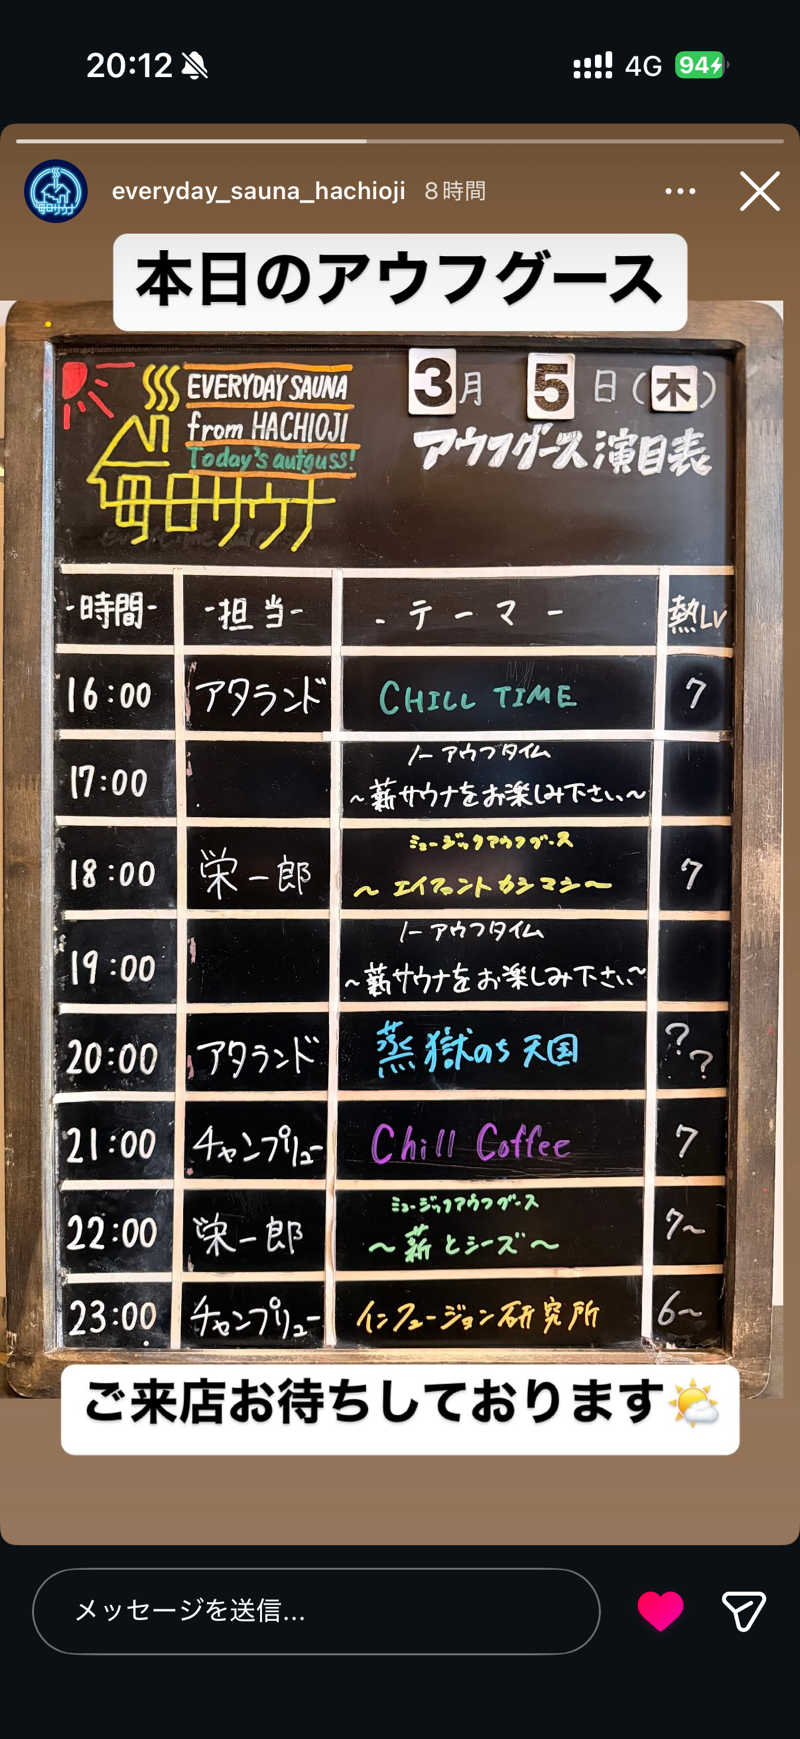 20:12 4G 94
everyday_sauna_hachioji 8時間
本日のアウフグース
EVERYDAY SAUNA
from HACHIOJI
Today's aufguss!
毎日サウナ
3月 5日(木)
アウフグース演目表
-時間- -担当- -テーマー 熱LV
16:00 アタランド CHILL TIME 7
17:00 ノーアウフタイム
~薪サウナをお楽しみ下さい~
18:00 栄一郎 ミュージックアウフグース 7
~エイファントカシマシ~
19:00 ノーアウフタイム
~薪サウナをお楽しみ下さい~
20:00 アタランド 蒸獄のち天国 ??
21:00 チャンプリュー Chill Coffee 7
22:00 栄一郎 ミュージックアウフグース 7~
~薪とシーズ~
23:00 チャンプリュー インフュージョン研究所 6~
ご来店お待ちしております
メッセージを送信...